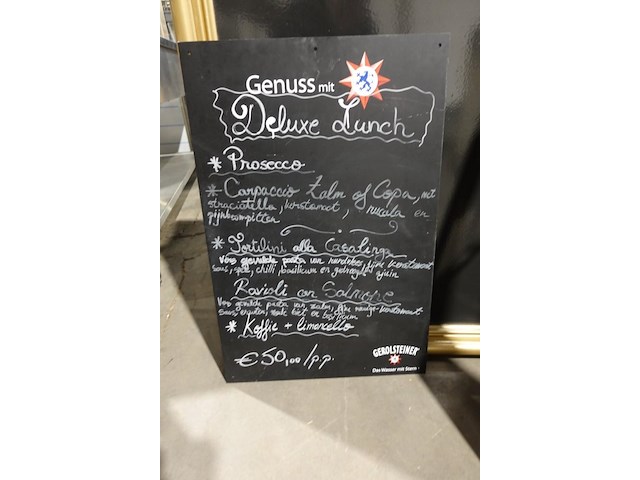 Genuss mit
Deluxe Lunch
* Prosecco
* Carpaccio Zalm of Copa, met
straciatella, kerstomaat, rucola en
pijnboompitten
* Tortilini alla Casalinga
Vers gevulde pasta van rundvlees, fijne kerstomaat
saus, spek, chilli, basilicum en
Ravioli con Salmone
Vers gevulde pasta van zalm, fijne kerstomaat
saus,
* Koffie + limoncello
€50,00 /p.p.
GEROLSTEINER
Das Wasser mit Stern